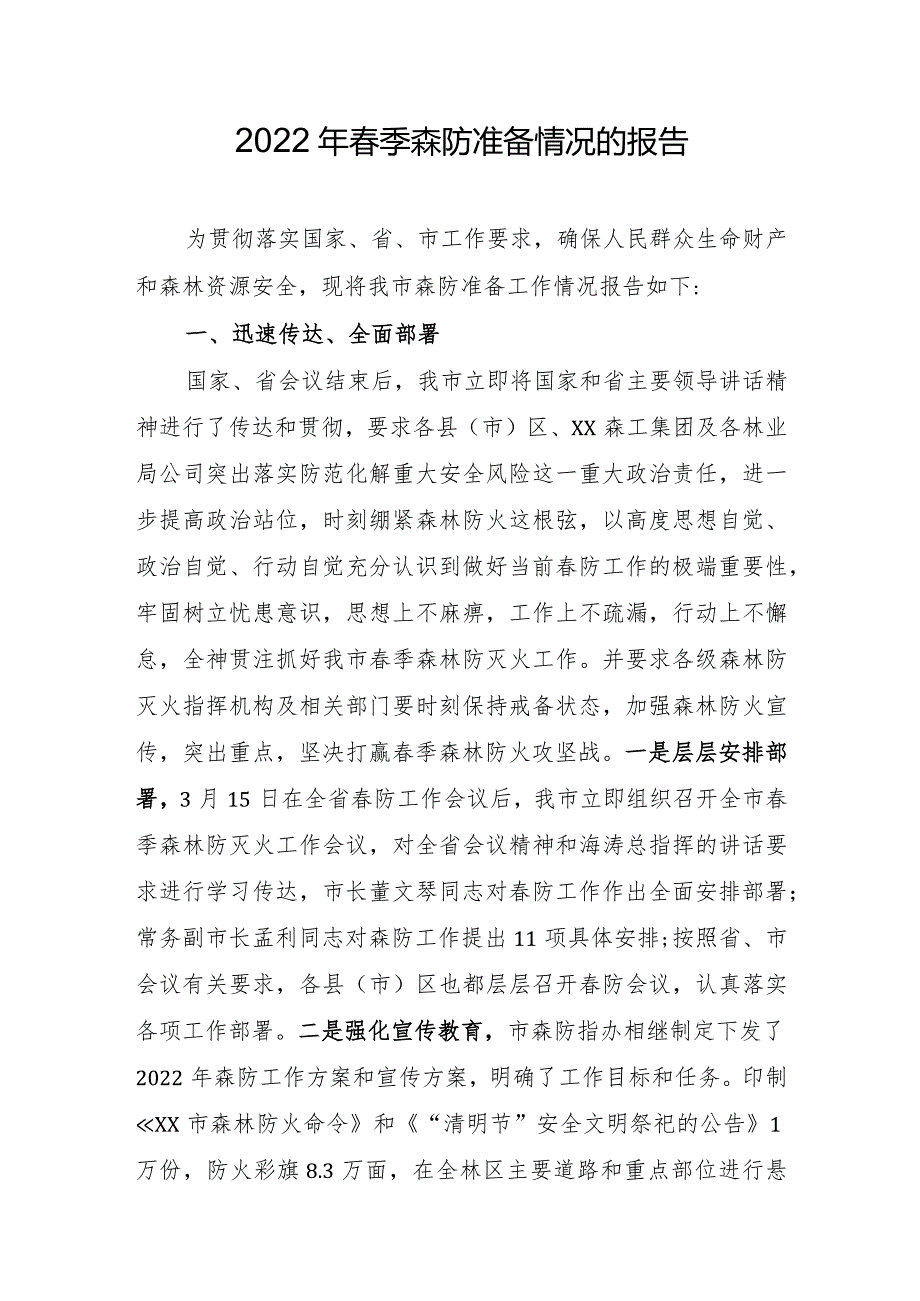 2022年春季森防准备情况的报告
为贯彻落实国家、省、市工作要求，确保人民群众生命财产
和森林资源安全，现将我市森防准备工作情况报告如下:
一、迅速传达、全面部署
国家、省会议结束后，我市立即将国家和省主要领导讲话精
神进行了传达和贯彻，要求各县（市）区、XX 森工集团及各林业
局公司突出落实防范化解重大安全风险这一重大政治责任，进一
步提高政治站位，时刻绷紧森林防火这根弦，以高度思想自觉、
政治自觉、行动自觉充分认识到做好当前春防工作的极端重要性，
牢固树立忧患意识，思想上不麻痹，工作上不疏漏，行动上不懈
怠，全神贯注抓好我市春季森林防灭火工作。并要求各级森林防
灭火指挥机构及相关部门要时刻保持戒备状态，加强森林防火宣
传，突出重点，坚决打赢春季森林防火攻坚战。一是层层安排部
署，3 月 15 日在全省春防工作会议后，我市立即组织召开全市春
季森林防灭火工作会议，对全省会议精神和海涛总指挥的讲话要
求进行学习传达，市长董文琴同志对春防工作作出全面安排部署;
常务副市长孟利同志对森防工作提出 11 项具体安排;按照省、市
会议有关要求，各县（市）区也都层层召开春防会议，认真落实
各项工作部署。二是强化宣传教育，市森防指办相继制定下发了
2022 年森防工作方案和宣传方案，明确了工作目标和任务。印制
≪XX 市森林防火命令》和《“清明节”安全文明祭祀的公告》1
万份，防火彩旗 8.3 万面，在全林区主要道路和重点部位进行悬